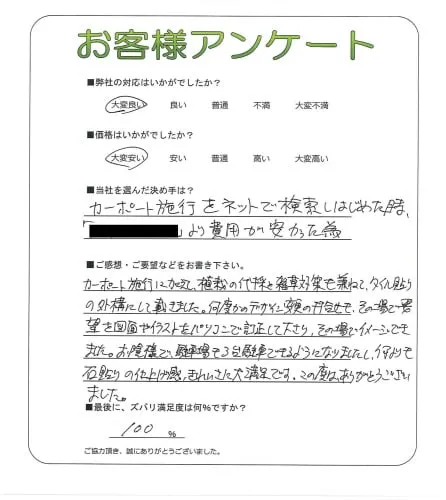 お客様アンケート
■弊社の対応はいかがでしたか？
大変良い 良い 普通 不満 大変不満
■価格はいかがでしたか？
大変安い 安い 普通 高い 大変高い
■当社を選んだ決め手は？
カーポート施行をネットで検索しはじめた時、
「 」より費用が安かった為
■ご感想・ご要望などをお書き下さい。
カーポート施行に加えて、植栽の伐採と雑草対策も兼ねて、タイル貼り
の外構にして戴きました。何度かのデザイン変更の打合せで、その場で希
望を図面やイラストをパソコンで訂正して下さり、その場でイメージでき
ました。お陰様で、駐車場も3台駐車できるようになりましたし、何よりも
石貼りの仕上げ感、きれいさに大満足です。この度は、ありがとうござい
ました。
■最後に、ズバリ満足度は何%ですか？
100 %
ご協力頂き、誠にありがとうございました。